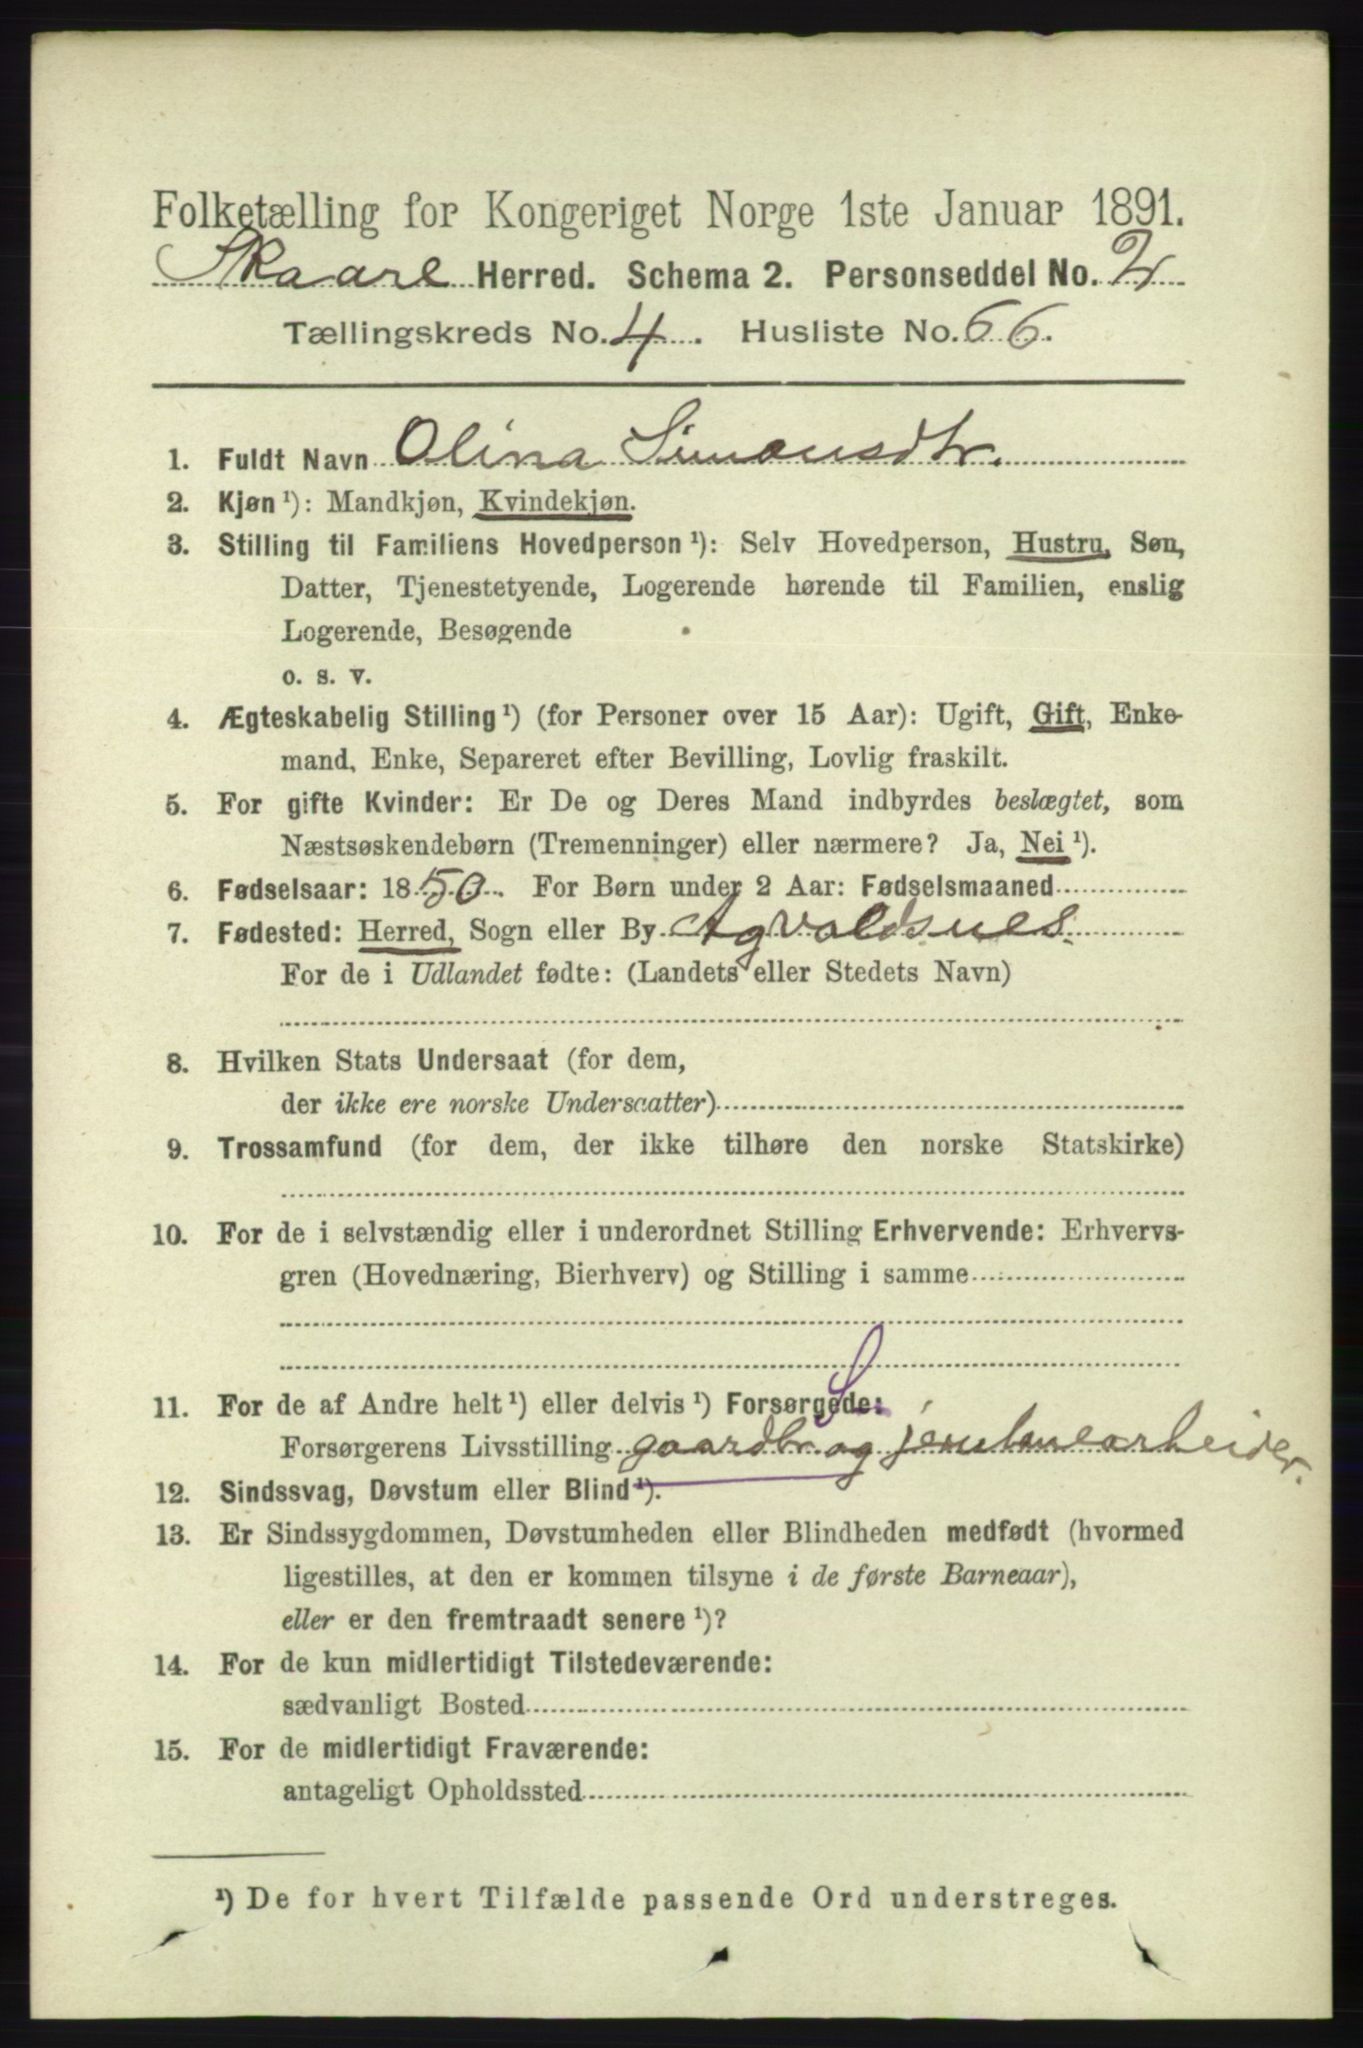 Folketælling for Kongeriget Norge 1ste Januar 1891.
Skaare Herred. Schema 2. Personseddel No. 2
Tællingskreds No. 4. Husliste No. 66.
1. Fuldt Navn Olina Simonsdtr.
2. Kjøn ¹): Mandkjøn, Kvindekjøn.
3. Stilling til Familiens Hovedperson ¹): Selv Hovedperson, Hustru, Søn,
Datter, Tjenestetyende, Logerende hørende til Familien, enslig
Logerende, Besøgende
o. s. v.
4. Ægteskabelig Stilling ¹) (for Personer over 15 Aar): Ugift, Gift, Enke-
mand, Enke, Separeret efter Bevilling, Lovlig fraskilt.
5. For gifte Kvinder: Er De og Deres Mand indbyrdes beslægtet, som
Næstsøskendebørn (Tremenninger) eller nærmere? Ja, Nei ¹).
6. Fødselsaar: 1850. For Børn under 2 Aar: Fødselsmaaned
7. Fødested: Herred, Sogn eller By Agvaldsnes.
For de i Udlandet fødte: (Landets eller Stedets Navn)
8. Hvilken Stats Undersaat (for dem,
der ikke ere norske Undersaatter)
9. Trossamfund (for dem, der ikke tilhøre den norske Statskirke)
10. For de i selvstændig eller i underordnet Stilling Erhvervende: Erhvervs-
gren (Hovednæring, Bierhverv) og Stilling i samme
11. For de af Andre helt ¹) eller delvis ¹) Forsørgede:
Forsørgerens Livsstilling gaardbr. og
12. Sindssvag, Døvstum eller Blind ¹).
13. Er Sindssygdommen, Døvstumheden eller Blindheden medfødt (hvormed
ligestilles, at den er kommen tilsyne i de første Barneaar),
eller er den fremtraadt senere ¹)?
14. For de kun midlertidigt Tilstedeværende:
sædvanligt Bosted
15. For de midlertidigt Fraværende:
antageligt Opholdssted
¹) De for hvert Tilfælde passende Ord understreges.